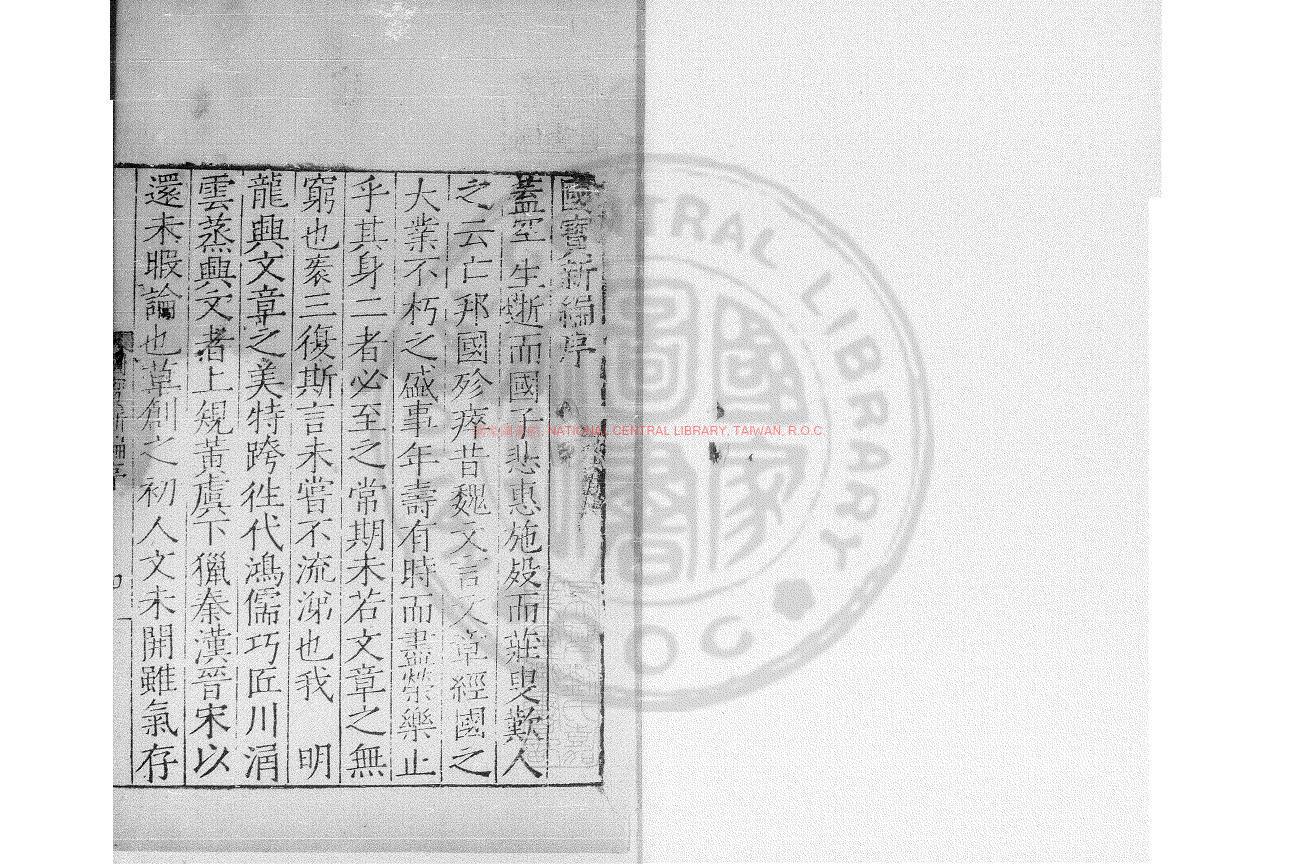 國寶新編序
蓋空生逝而國子悲惠施歿而莊叟歎人
之云亡邦國殄瘁昔魏文言文章經國之
大業不朽之盛事年壽有時而盡榮樂止
乎其身二者必至之常期未若文章之無
窮也褱三復斯言未嘗不流涕也我 明
龍興文章之美特跨徃代鴻儒巧匠川涓
雲蒸興文者上規黃虞下獵秦漢晉宋以
還未暇論也草創之初人文未開雖氣存
NATIONAL CENTRAL LIBRARY, TAIWAN, R.O.C
CENTRAL LIBRARY
國家圖書